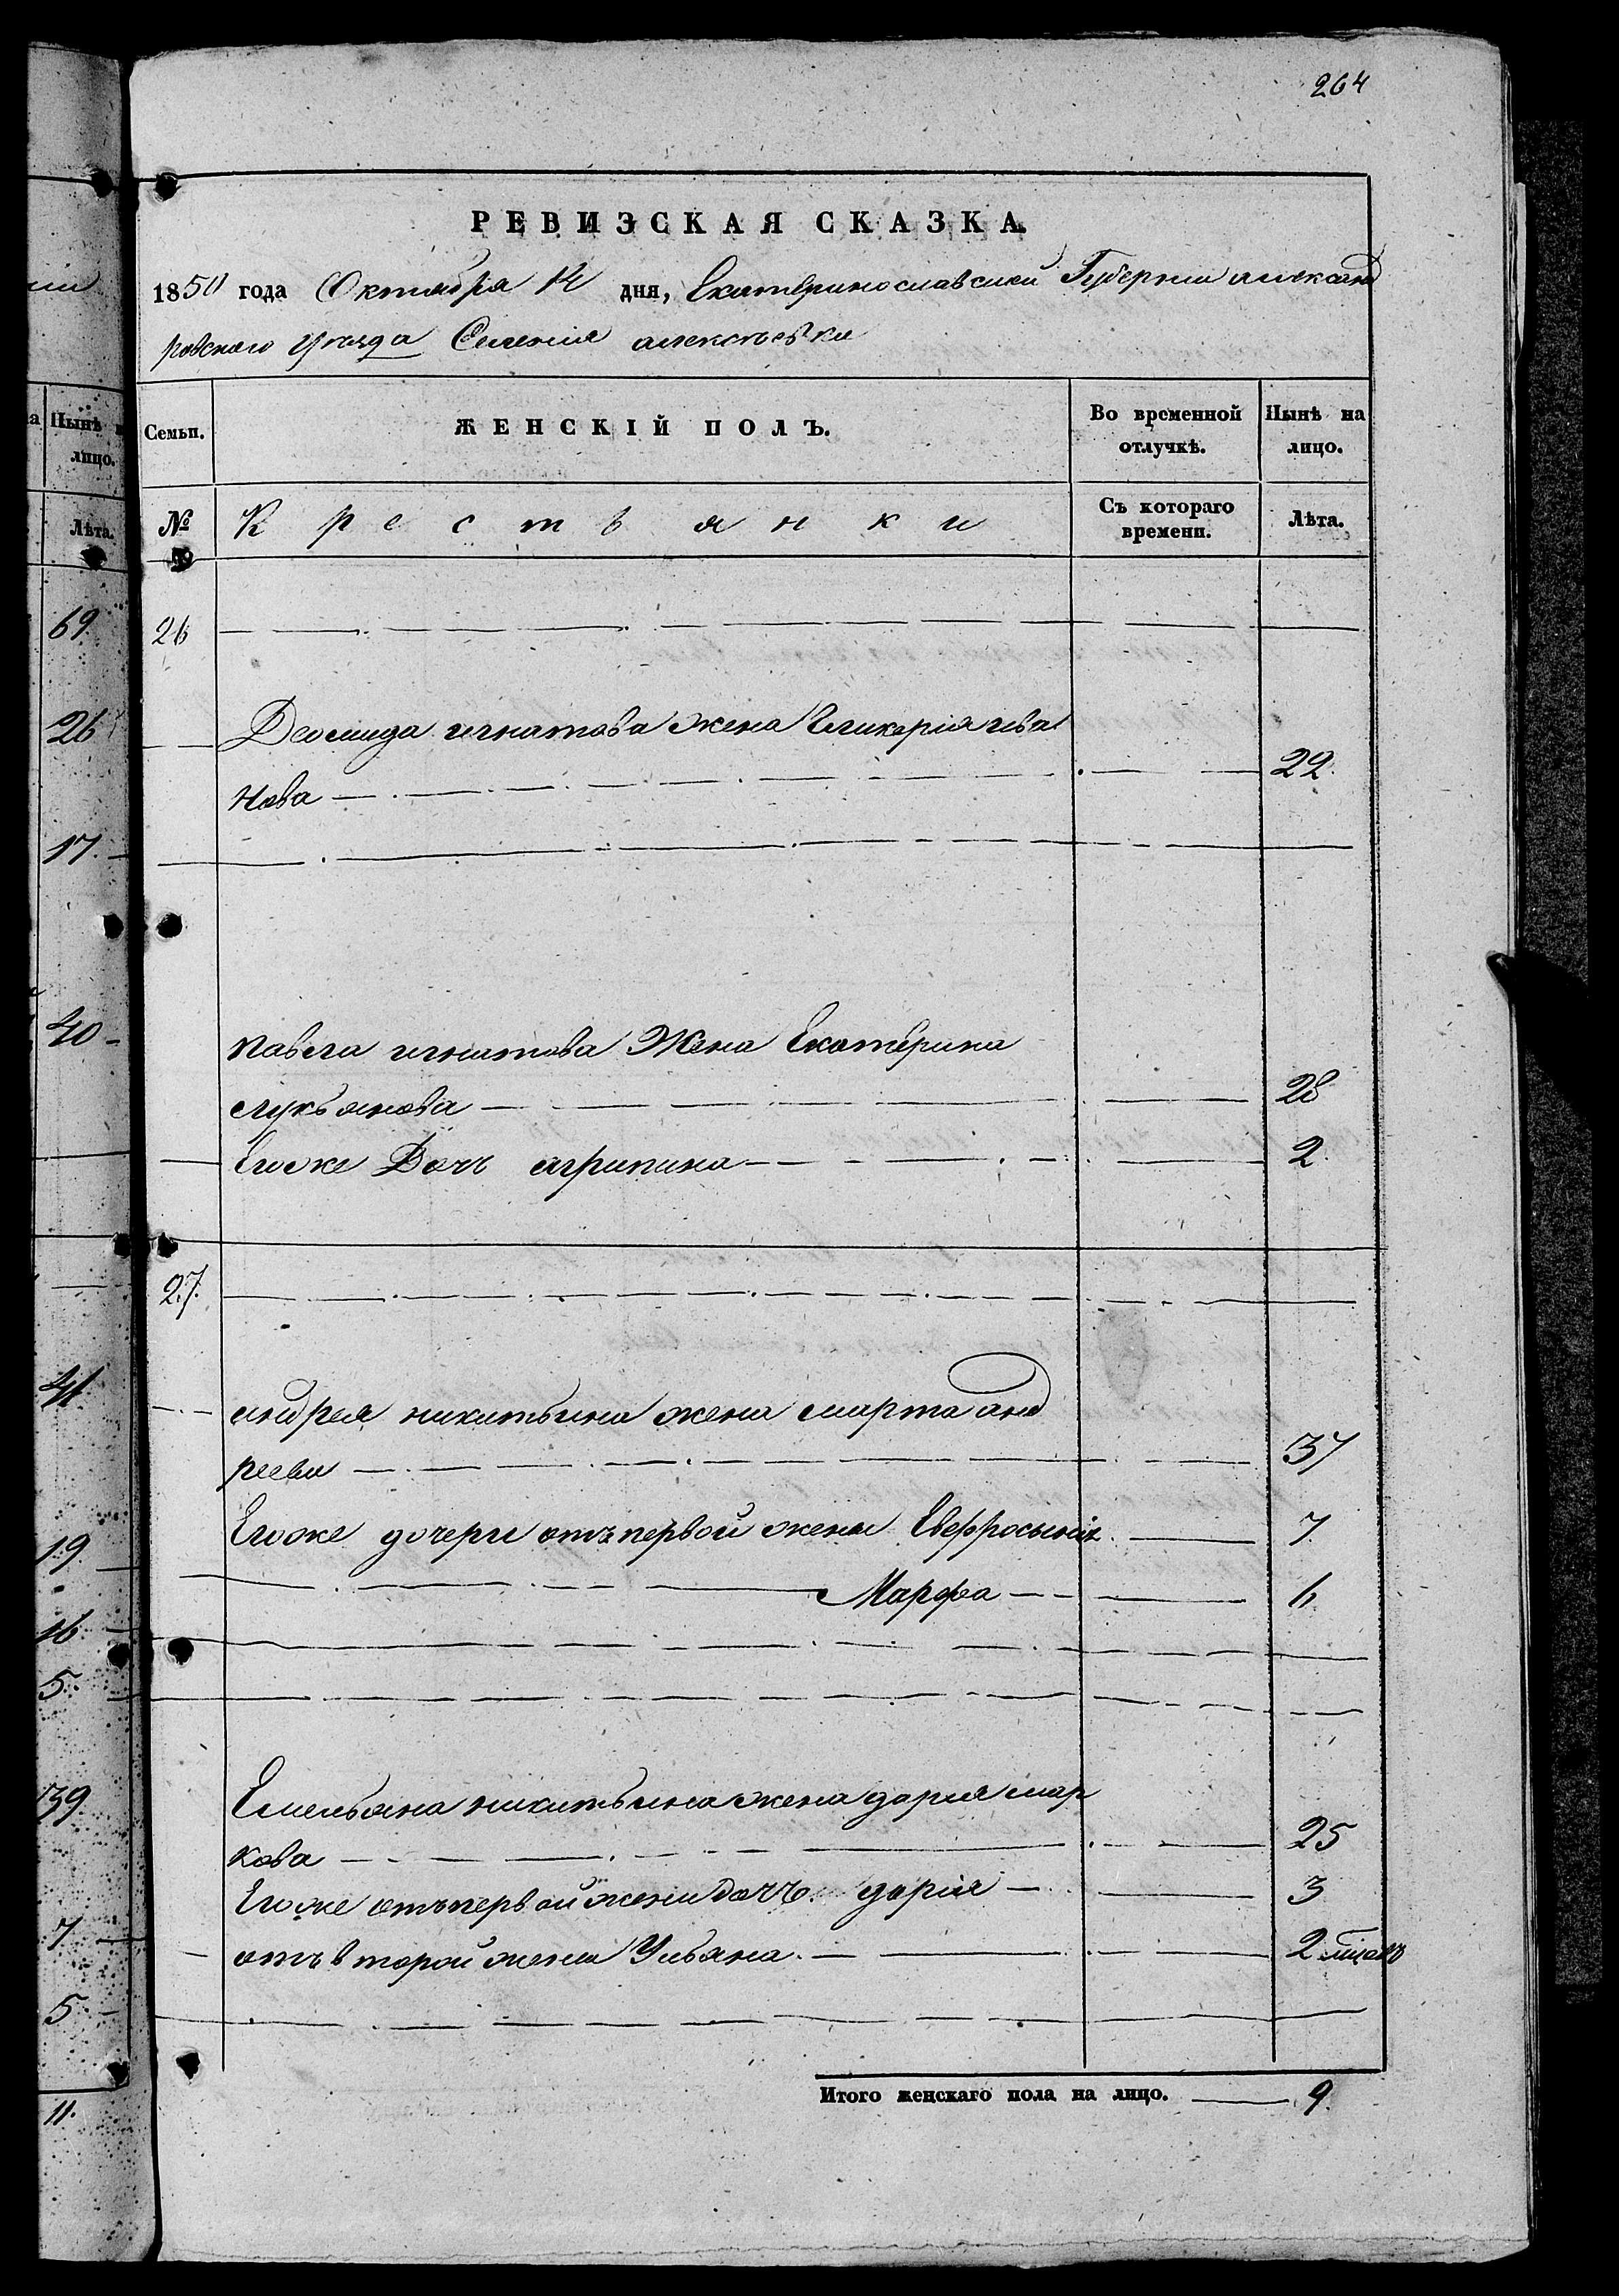 264
РЕВИЗСКАЯ СКАЗКА.
1850 года Октября 14 дня, Екатеринославской Губернии александ
ровскаго уѣзда Селенія алексѣевки
Семьи.
ЖЕНСКІЙ ПОЛЪ.
Во временной отлучкѣ.
Нынѣ на лицо.
№
Крестьянки
Съ котораго времени.
Лѣта.
26
Деомида игнатова жена Гликерія ива
нова 22.
павла игнатова Жена Екатерина
лукьянова 28
Егоже Дочь агрипина 2.
27.
андрея никитьина жена марта анд
реева 37
Егоже дочери отъ первой жены Евфросынія 7.
Марфа 6
Емельяна никитьина жена дарія мар
кова 25
Егоже отъ первой жены дочь дарія 3
отъ второй жены Ульяна 2 мѣсяцовъ
Итого женскаго пола на лицо. 9.
Нынѣ
лицо.
Лѣта.
69.
26
17.
40
41
19
16
5.
39.
7
5.
11.